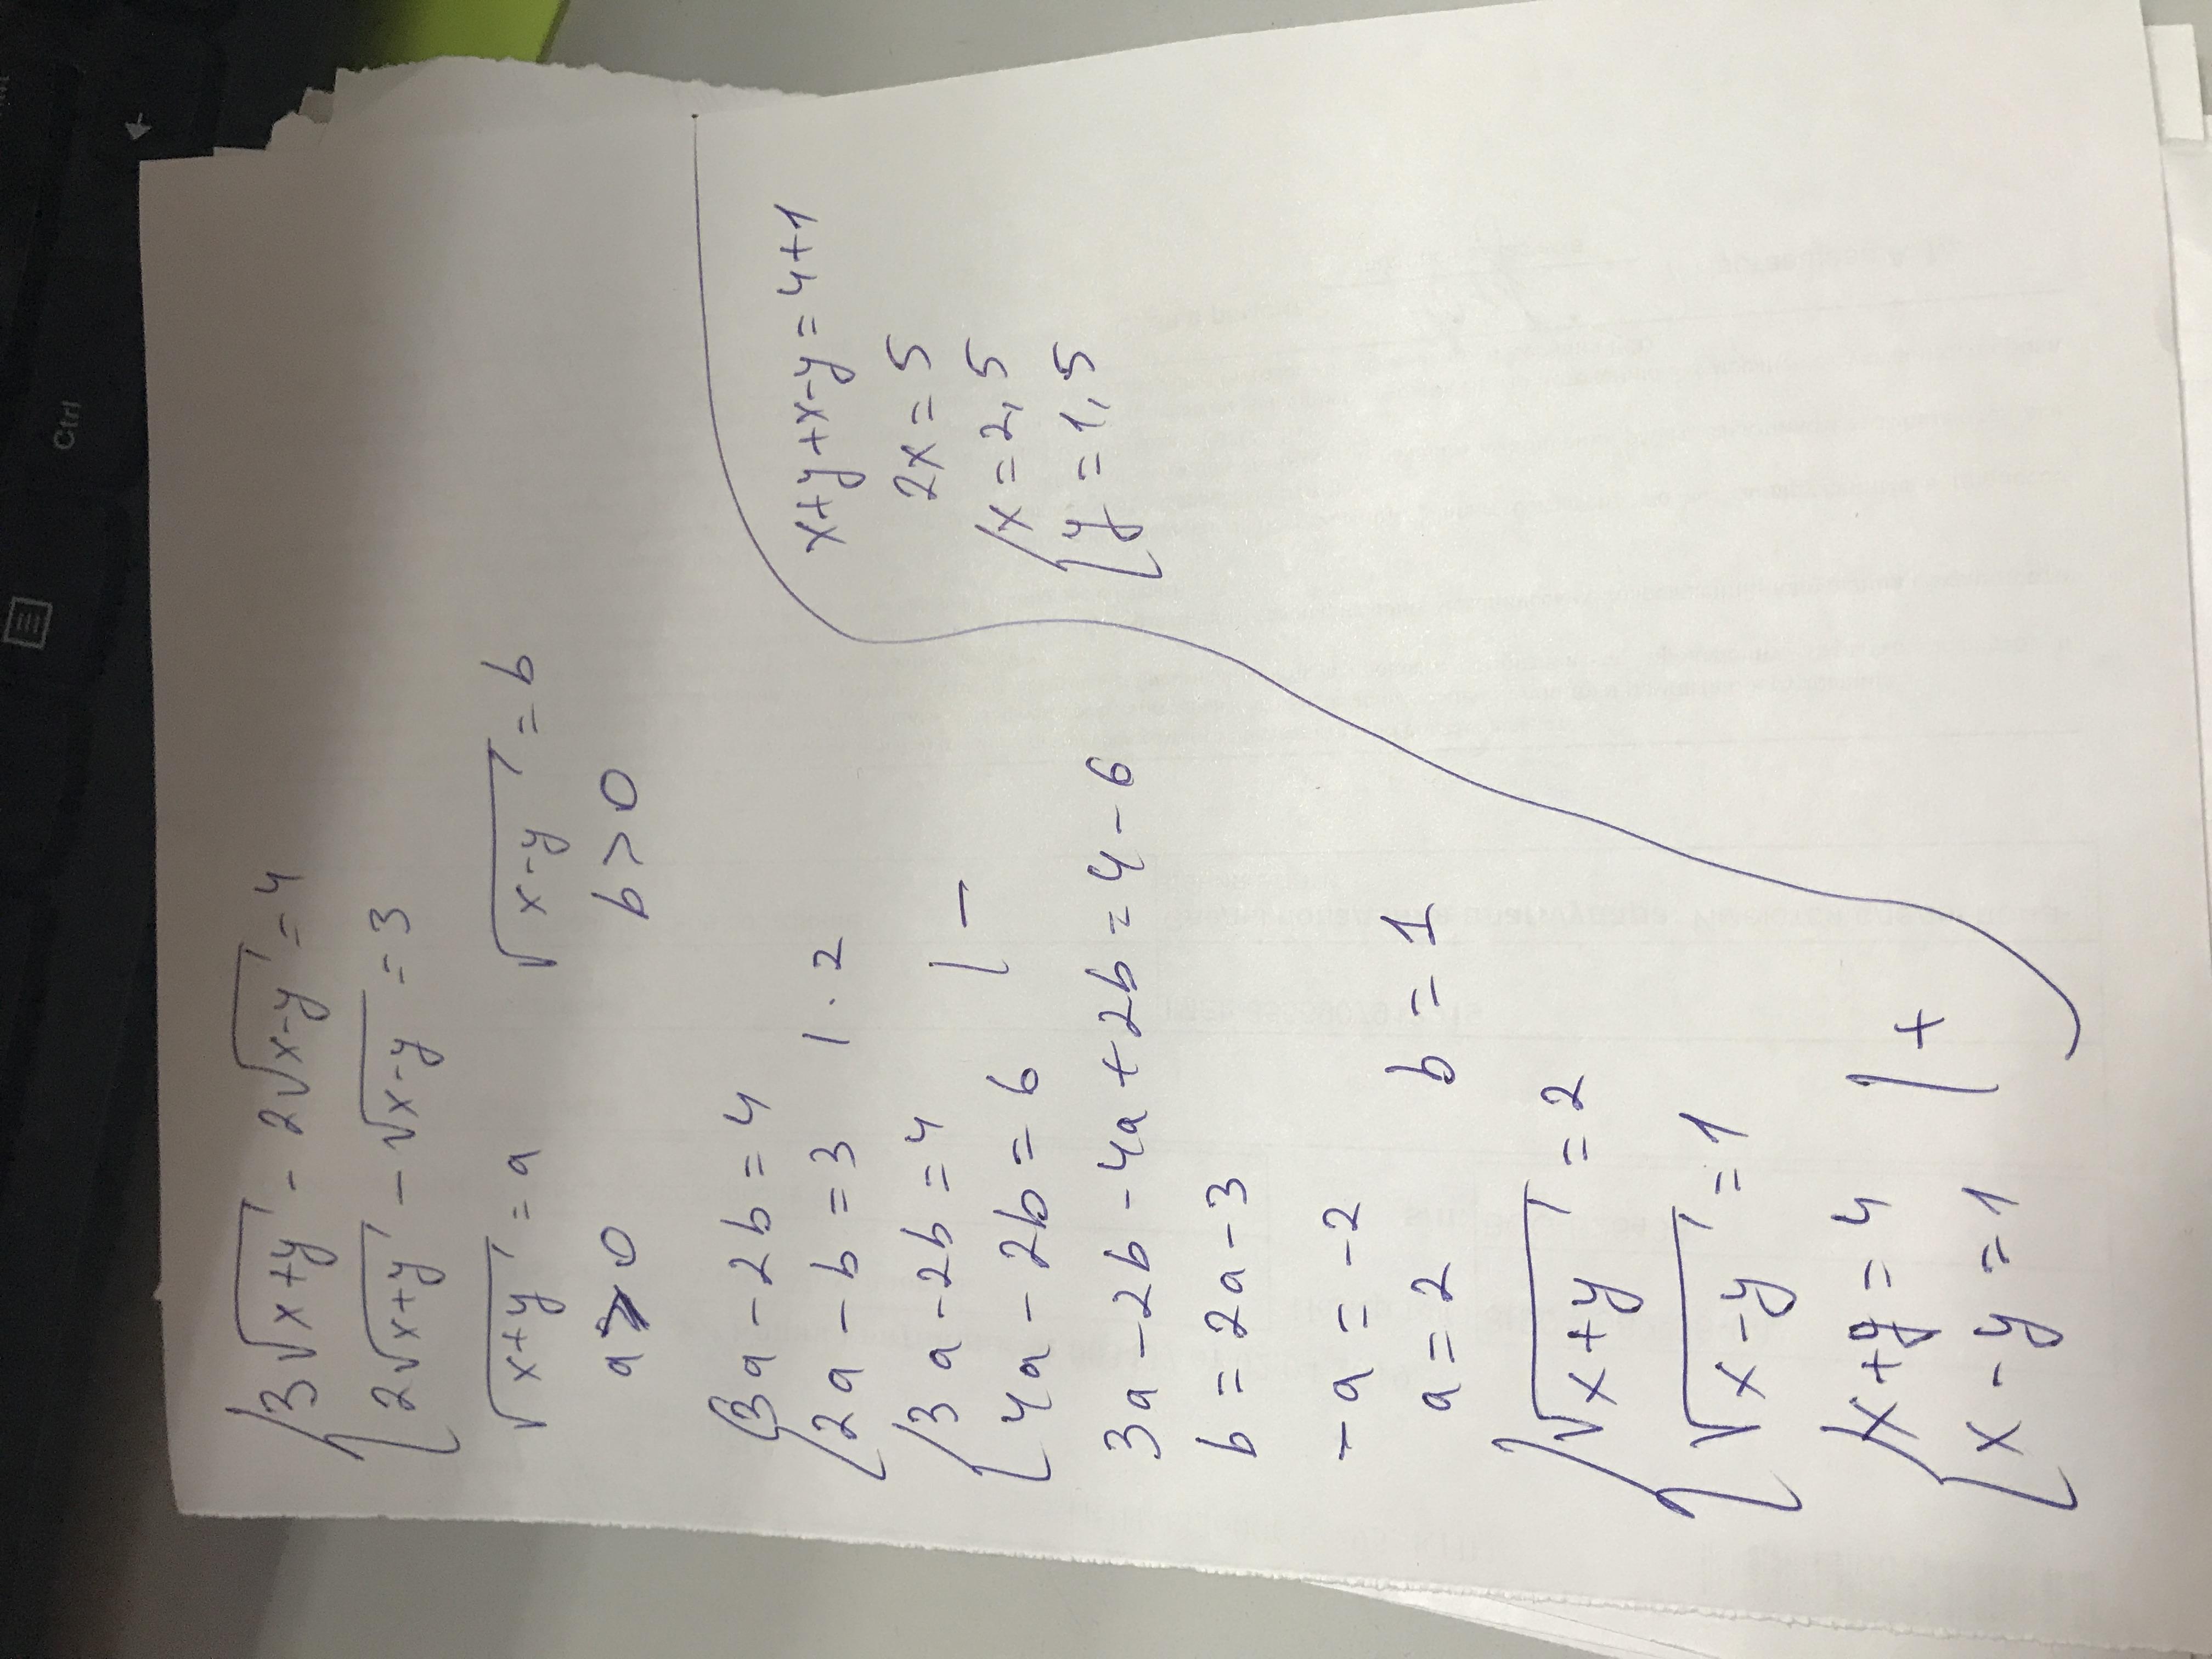 3√x+y - 2√x-y = 4
2√x+y - √x-y = 3
√x+y = a √x-y = b
a > 0 b > 0
3a - 2b = 4
2a - b = 3 | · 2
3a - 2b = 4
4a - 2b = 6 | -
3a - 2b - 4a + 2b = 4 - 6
b = 2a - 3
-a = -2
a = 2 b = 1
√x+y = 2
√x-y = 1
x+y = 4
x-y = 1 | +
x+y+x-y = 4+1
2x = 5
x = 2,5
y = 1,5
Ctrl